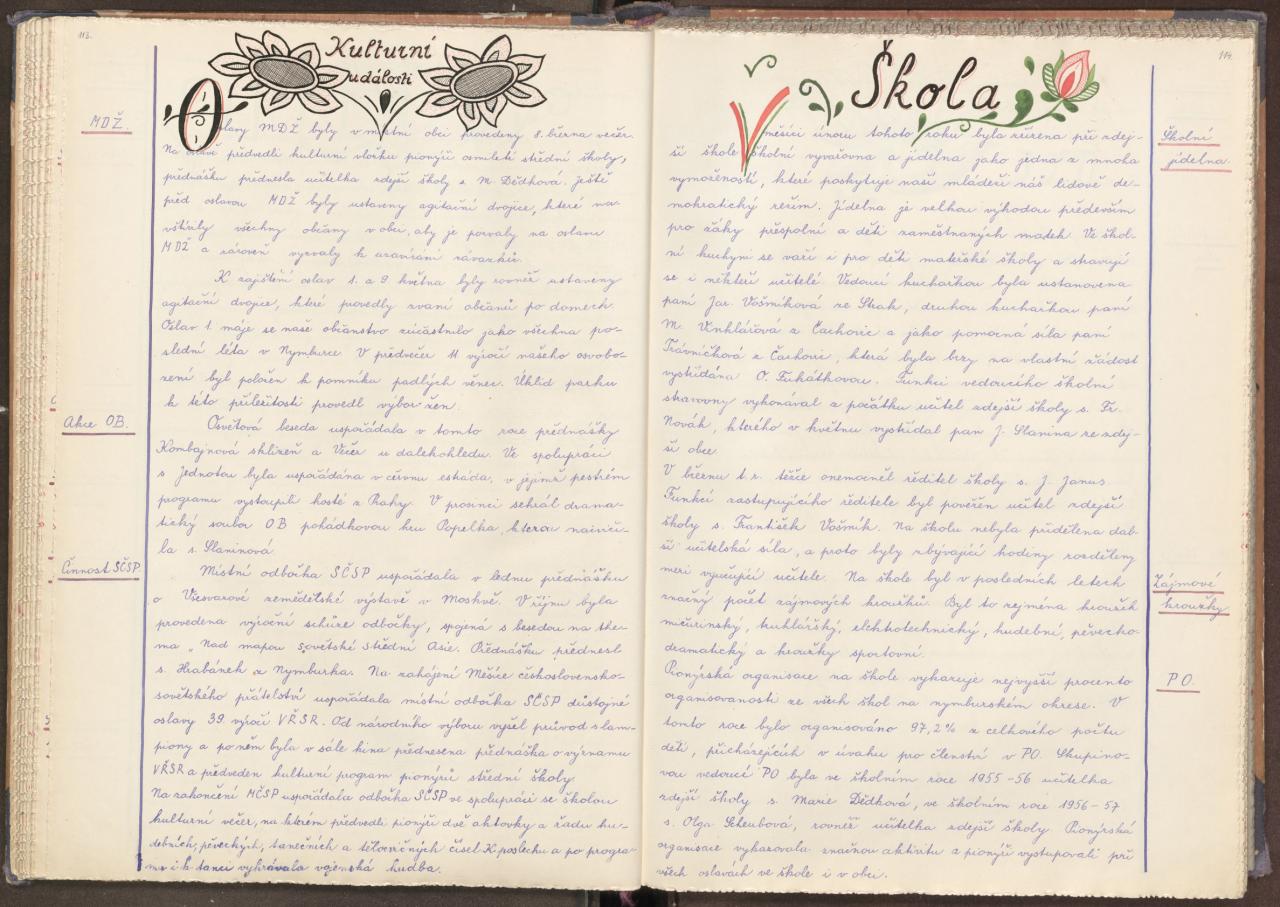 113.
Kulturní
události
MDŽ.
Oslavy MDŽ byly v místní obci provedeny 8. března večer.
Na oslavě předvedli kulturní vložku pionýři osmileté střední školy,
přednášku přednesla učitelka zdejší školy s. M. Dědková. Ještě
před oslavou MDŽ byly ustaveny agitační dvojice, které na-
vštívily všechny občany v obci, aby je pozvaly na oslavu
MDŽ a zároveň vyzvaly k uzavírání závazků.
K zajištění oslav 1. a 9. května byly rovněž ustaveny
agitační dvojice, které provedly zvaní občanů po domech.
Oslav 1. máje se naše občanstvo zúčastnilo jako všechna po-
slední léta v Nymburce. V předvečer 11. výročí našeho osvobo-
zení byl položen k pomníku padlých věnec. Úklid parku
k této příležitosti provedl výbor žen.
Akce OB.
Osvětová beseda uspořádala v tomto roce přednášky
Kombajnová sklizeň a Večer u dalekohledu. Ve spolupráci
s Jednotou byla uspořádána v červnu estráda, v jejímž pestrém
programu vystoupili hosté z Prahy. V prosinci sehrál drama-
tický soubor OB pohádkovou hru Popelka, kterou nacviči-
la s. Slaninová.
Činnost SČSP.
Místní odbočka SČSP uspořádala v lednu přednášku
o Všesvazové zemědělské výstavě v Moskvě. V říjnu byla
provedena výroční schůze odbočky, spojená s besedou na the-
ma „Nad mapou sovětské střední Asie. Přednášku přednesl
s. Hrabánek z Nymburka. Na zahájení Měsíce československo-
sovětského přátelství uspořádala místní odbočka SČSP důstojné
oslavy 39. výročí VŘSR. Od národního výboru vyšel průvod s lam-
piony a po něm byla v sále kina přednesena přednáška o významu
VŘSR a předveden kulturní program pionýrů střední školy
Na zakončení MČSP uspořádala odbočka SČSP ve spolupráci se školou
kulturní večer, na kterém předvedli pionýři dvě aktovky a řadu hu-
debních, pěveckých, tanečních a tělocvičných čísel. K poslechu a po progra-
mu i k tanci vyhrávala vojenská hudba.
114.
Škola
Školní
jídelna.
V měsíci únoru tohoto roku byla zřízena při zdej-
ší škole školní vyvařovna a jídelna jako jedna z mnoha
vymožeností, které poskytuje naší mládeži náš lidově de-
mokratický režim. Jídelna je velkou výhodou především
pro žáky přespolní a děti zaměstnaných matek. Ve škol-
ní kuchyni se vaří i pro děti mateřské školy a stravují
se i někteří učitelé. Vedoucí kuchařkou byla ustanovena
paní Jar. Vošmiková ze Strak, druhou kuchařkou paní
M. Vinklářová z Čachovic a jako pomocná síla paní
Trávníčková z Čachovic, která byla brzy na vlastní žádost
vystřídána O. Fukátkovou. Funkci vedoucího školní
stravovny vykonával z počátku učitel zdejší školy s. Fr.
Novák, kterého v květnu vystřídal pan J. Slanina ze zdej-
ší obce.
V březnu t.r. těžce onemocněl ředitel školy s. J. Janus.
Funkcí zastupujícího ředitele byl pověřen učitel zdejší
školy s. František Vošmik. Na školu nebyla přidělena dal-
ší učitelská síla, a proto byly zbývající hodiny rozděleny
mezi vyučující učitele. Na škole byl v posledních letech
Zájmové
kroužky
značný počet zájmových kroužků. Byl to zejména kroužek
mičurinský, truhlářský, elektrotechnický, hudební, pěvecko-
dramatický a kroužky sportovní.
P.O.
Pionýrská organisace na škole vykazuje nejvyšší procento
organisovanosti ze všech škol na nymburském okrese. V
tomto roce bylo organisováno 97,2% z celkového počtu
dětí, přicházejících v úvahu pro členství v PO. Skupino-
vou vedoucí PO byla ve školním roce 1955-56 učitelka
zdejší školy s. Marie Dědková, ve školním roce 1956-57
s. Olga Scheubová, rovněž učitelka zdejší školy. Pionýrská
organisace vykazovala značnou aktivitu a pionýři vystupovali při
všech oslavách ve škole i v obci.